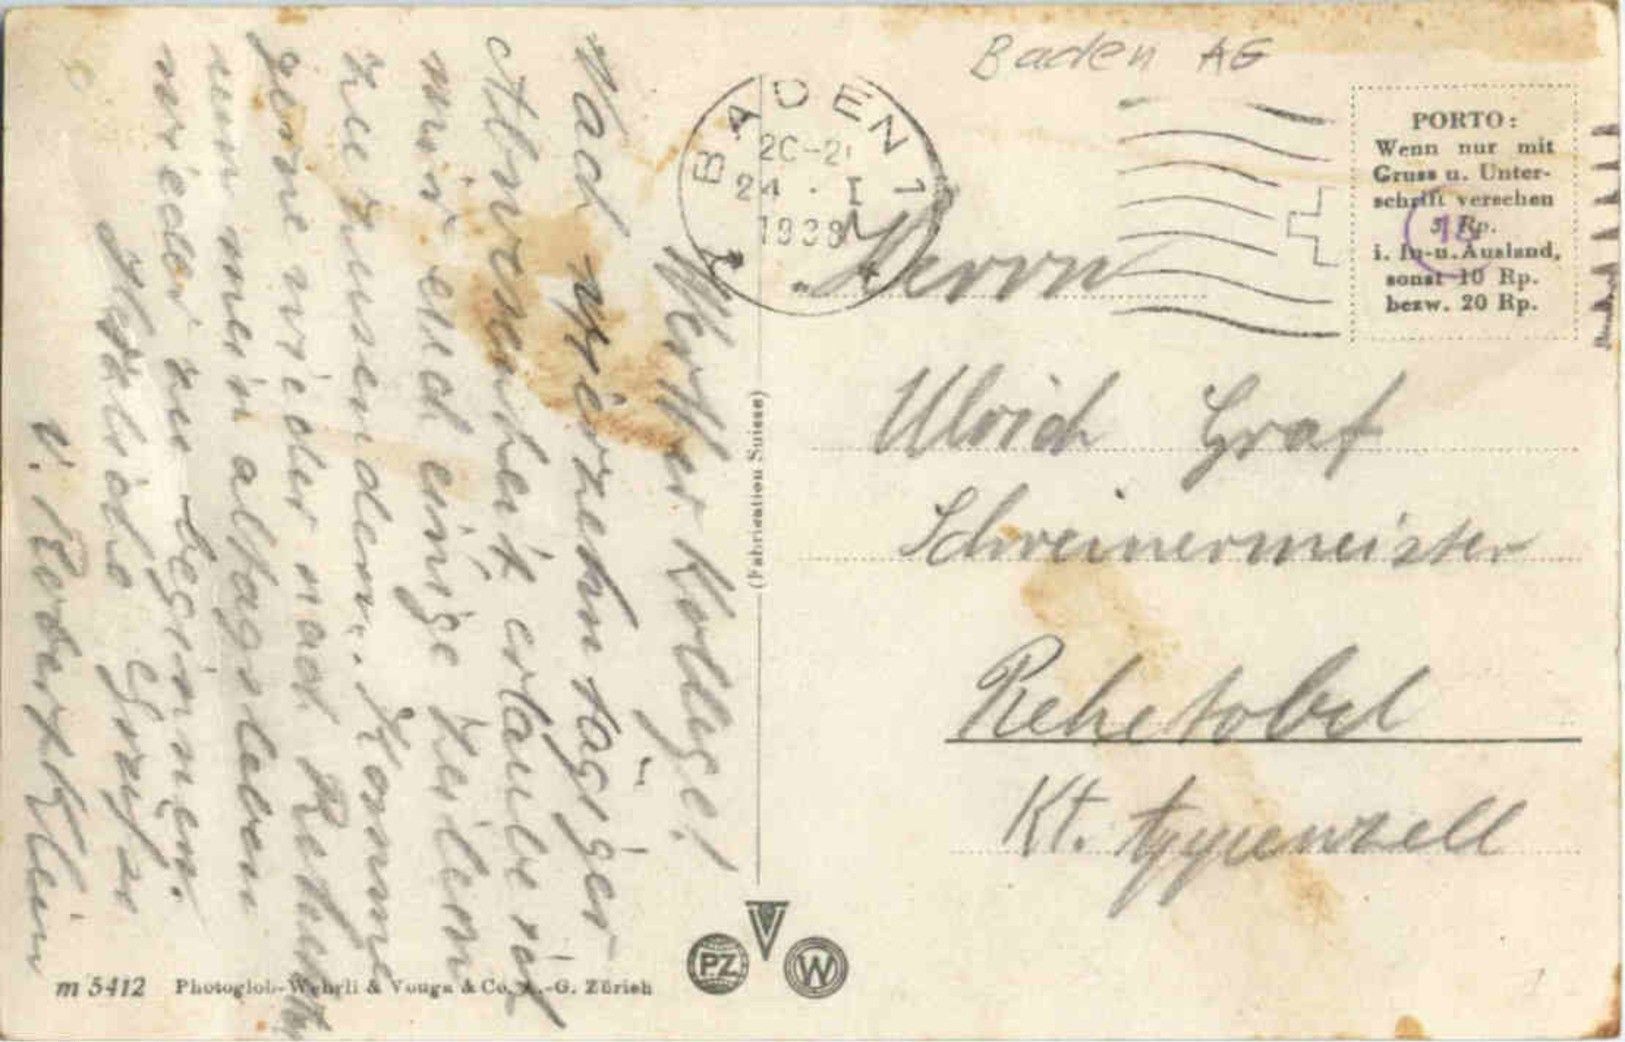 Baden AG
BADEN 1
24 · I
PORTO:
Wenn nur mit
Gruss u. Unter-
schrift versehen
5 Rp.
i. In- u. Ausland,
sonst 10 Rp.
bezw. 20 Rp.
Herrn
Ulrich Graf
Schreinermeister
Rehetobel
Kt. Appenzell
Werther Kollege!
Nach vierzehntägiger
Abwesenheit erlaube ich
mir euch einige Zeilen
zuzusenden. Komme
gerne wieder nach
um mein alltagsleben
wieder zu beginnen.
Herzliche Grüsse
(Fabrication Suisse)
PZ V W
m 5412 Photoglob-Wehrli & Vouga & Co. A.-G. Zürich